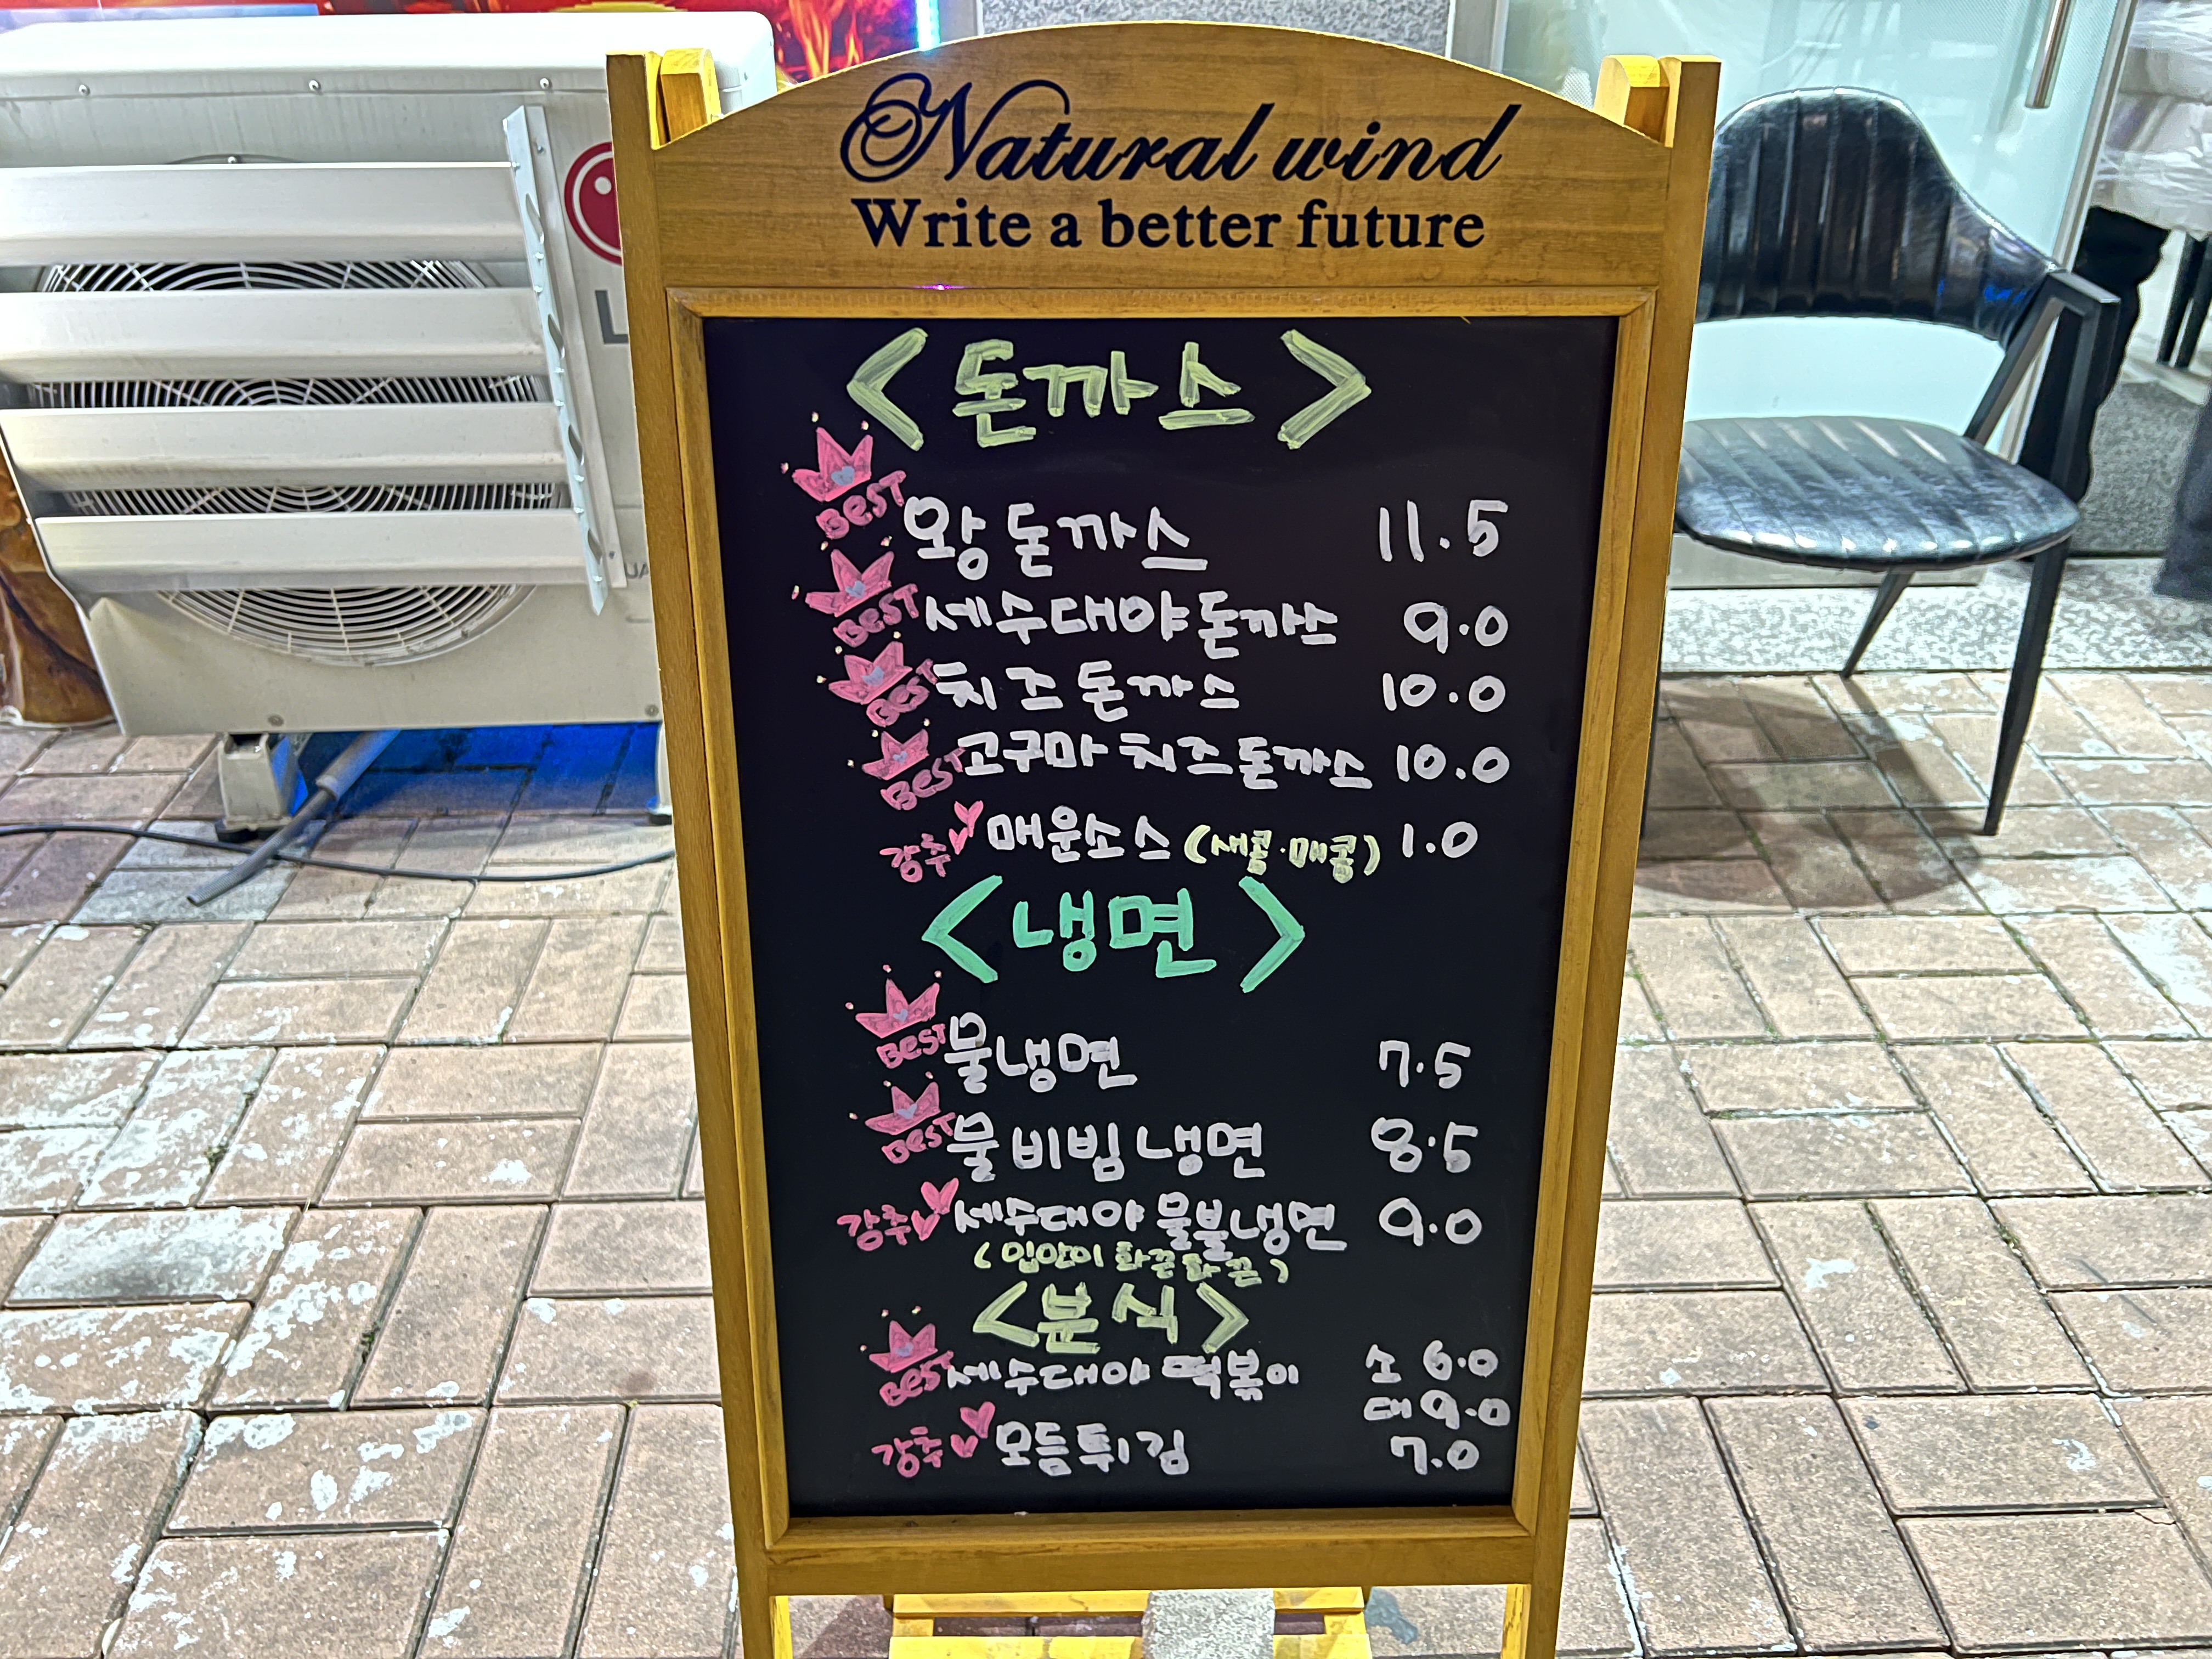 Natural wind
Write a better future
<돈까스>
BEST 왕돈까스 11.5
BEST 세수대야돈까스 9.0
BEST 치즈돈까스 10.0
BEST 고구마치즈돈까스 10.0
강추 매운소스 (새콤·매콤) 1.0
<냉면>
BEST 물냉면 7.5
BEST 물비빔냉면 8.5
강추 세수대야 물불냉면 9.0
(입안이 화끈화끈)
<분식>
BEST 세수대야 떡볶이 소 6.0
대 9.0
강추 모듬튀김 7.0